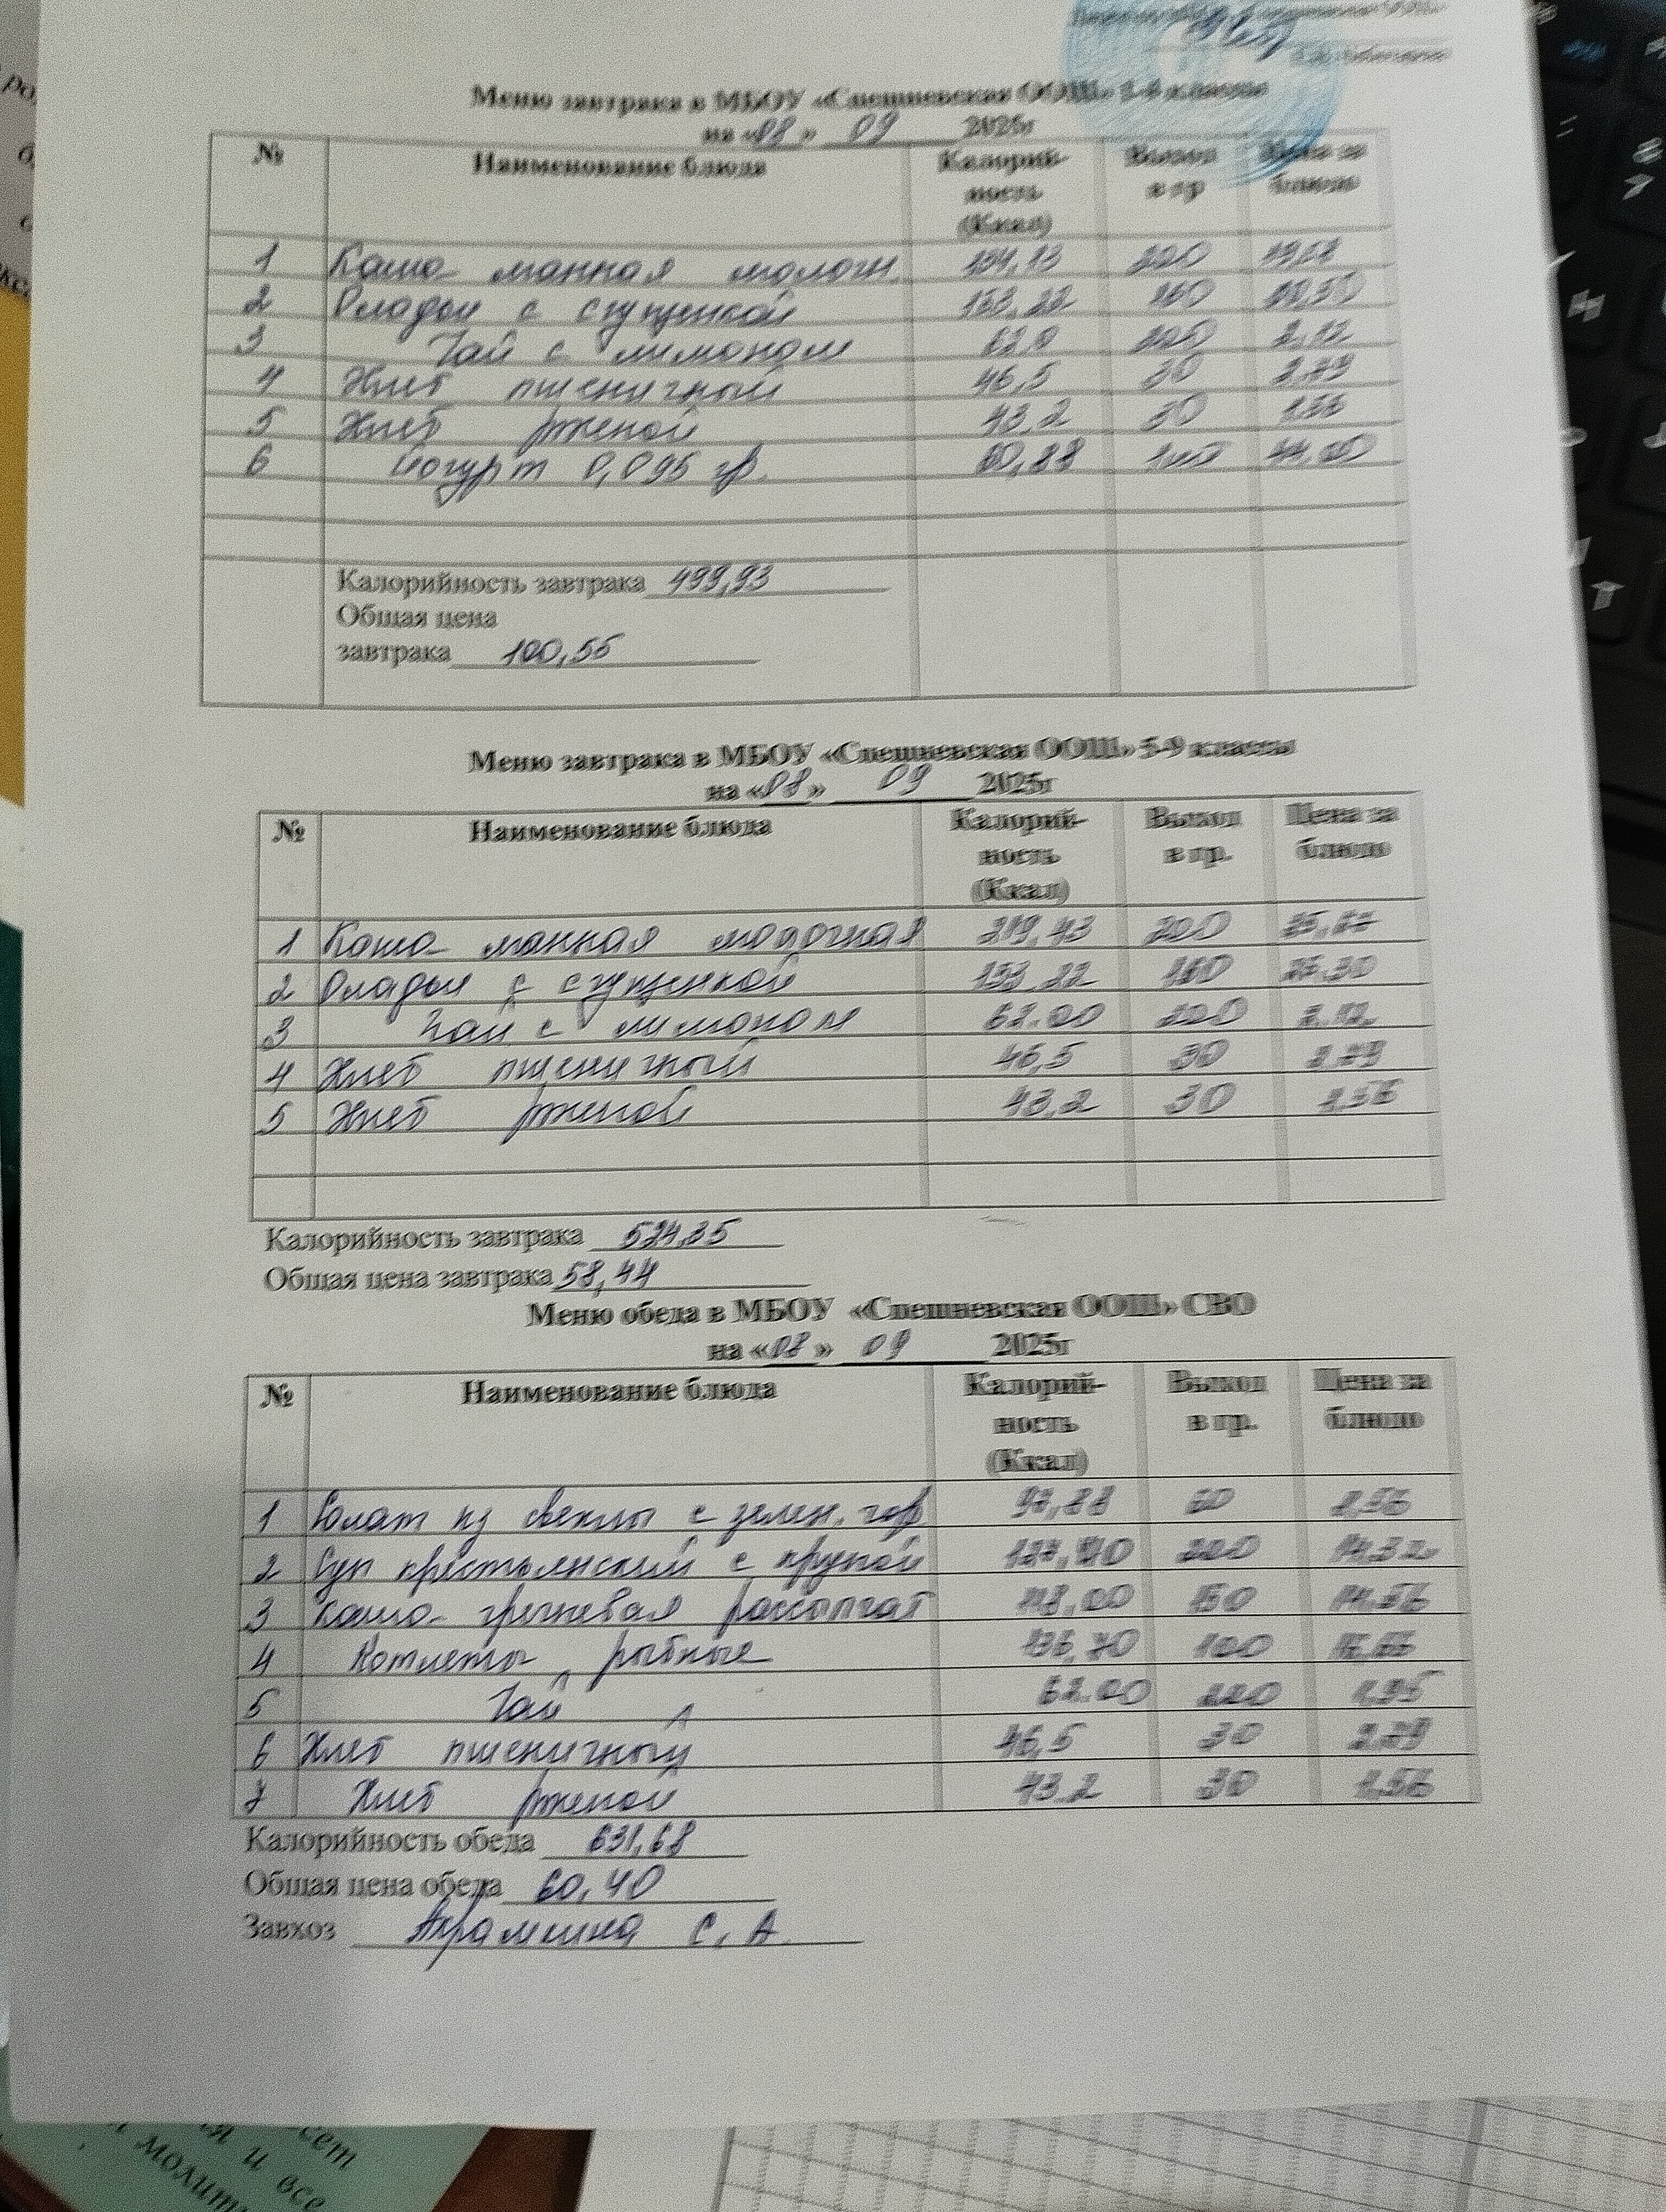 Меню завтрака в МБОУ «Спешневская ООШ» 1-4 классы
на «08» 09 2025г
№ Наименование блюда Калорий-ность (Ккал) Выход в гр Цена за блюдо
1 Каша манная молочн. 220
2 Оладьи с сгущенкой 153,22 150
3 Чай с лимоном 62,0 2,12
4 Хлеб пшеничный 46,5 30 2,79
5 Хлеб ржаной 43,2 30 1,56
6 Йогурт 0,095 гр.
Калорийность завтрака 499,93
Общая цена
завтрака 100,55
Меню завтрака в МБОУ «Спешневская ООШ» 5-9 классы
на «08» 09 2025г
№ Наименование блюда Калорий-ность (Ккал) Выход в гр. Цена за блюдо
1 Каша манная молочная 219,43 220
2 Оладьи с сгущенкой 153,22 150
3 Чай с лимоном 62.00 220 2,12
4 Хлеб пшеничный 46,5 30 2,79
5 Хлеб ржаной 43,2 30 1,56
Калорийность завтрака 524,35
Общая цена завтрака 58,44
Меню обеда в МБОУ «Спешневская ООШ» СВО
на «08» 09 2025г
№ Наименование блюда Калорий-ность (Ккал) Выход в гр. Цена за блюдо
1 Салат из свеклы с зелен. гор 97,88 60
2 Суп крестьянский с крупой 220 14,32
3 Каша гречневая рассыпчат 118,00 150 14,56
4 Котлеты рыбные 136,70 100
5 Чай 62.00 220 1,95
6 Хлеб пшеничный 46,5 30 2,79
7 Хлеб ржаной 43,2 30 1,56
Калорийность обеда 631,68
Общая цена обеда 60,40
Завхоз С. А.